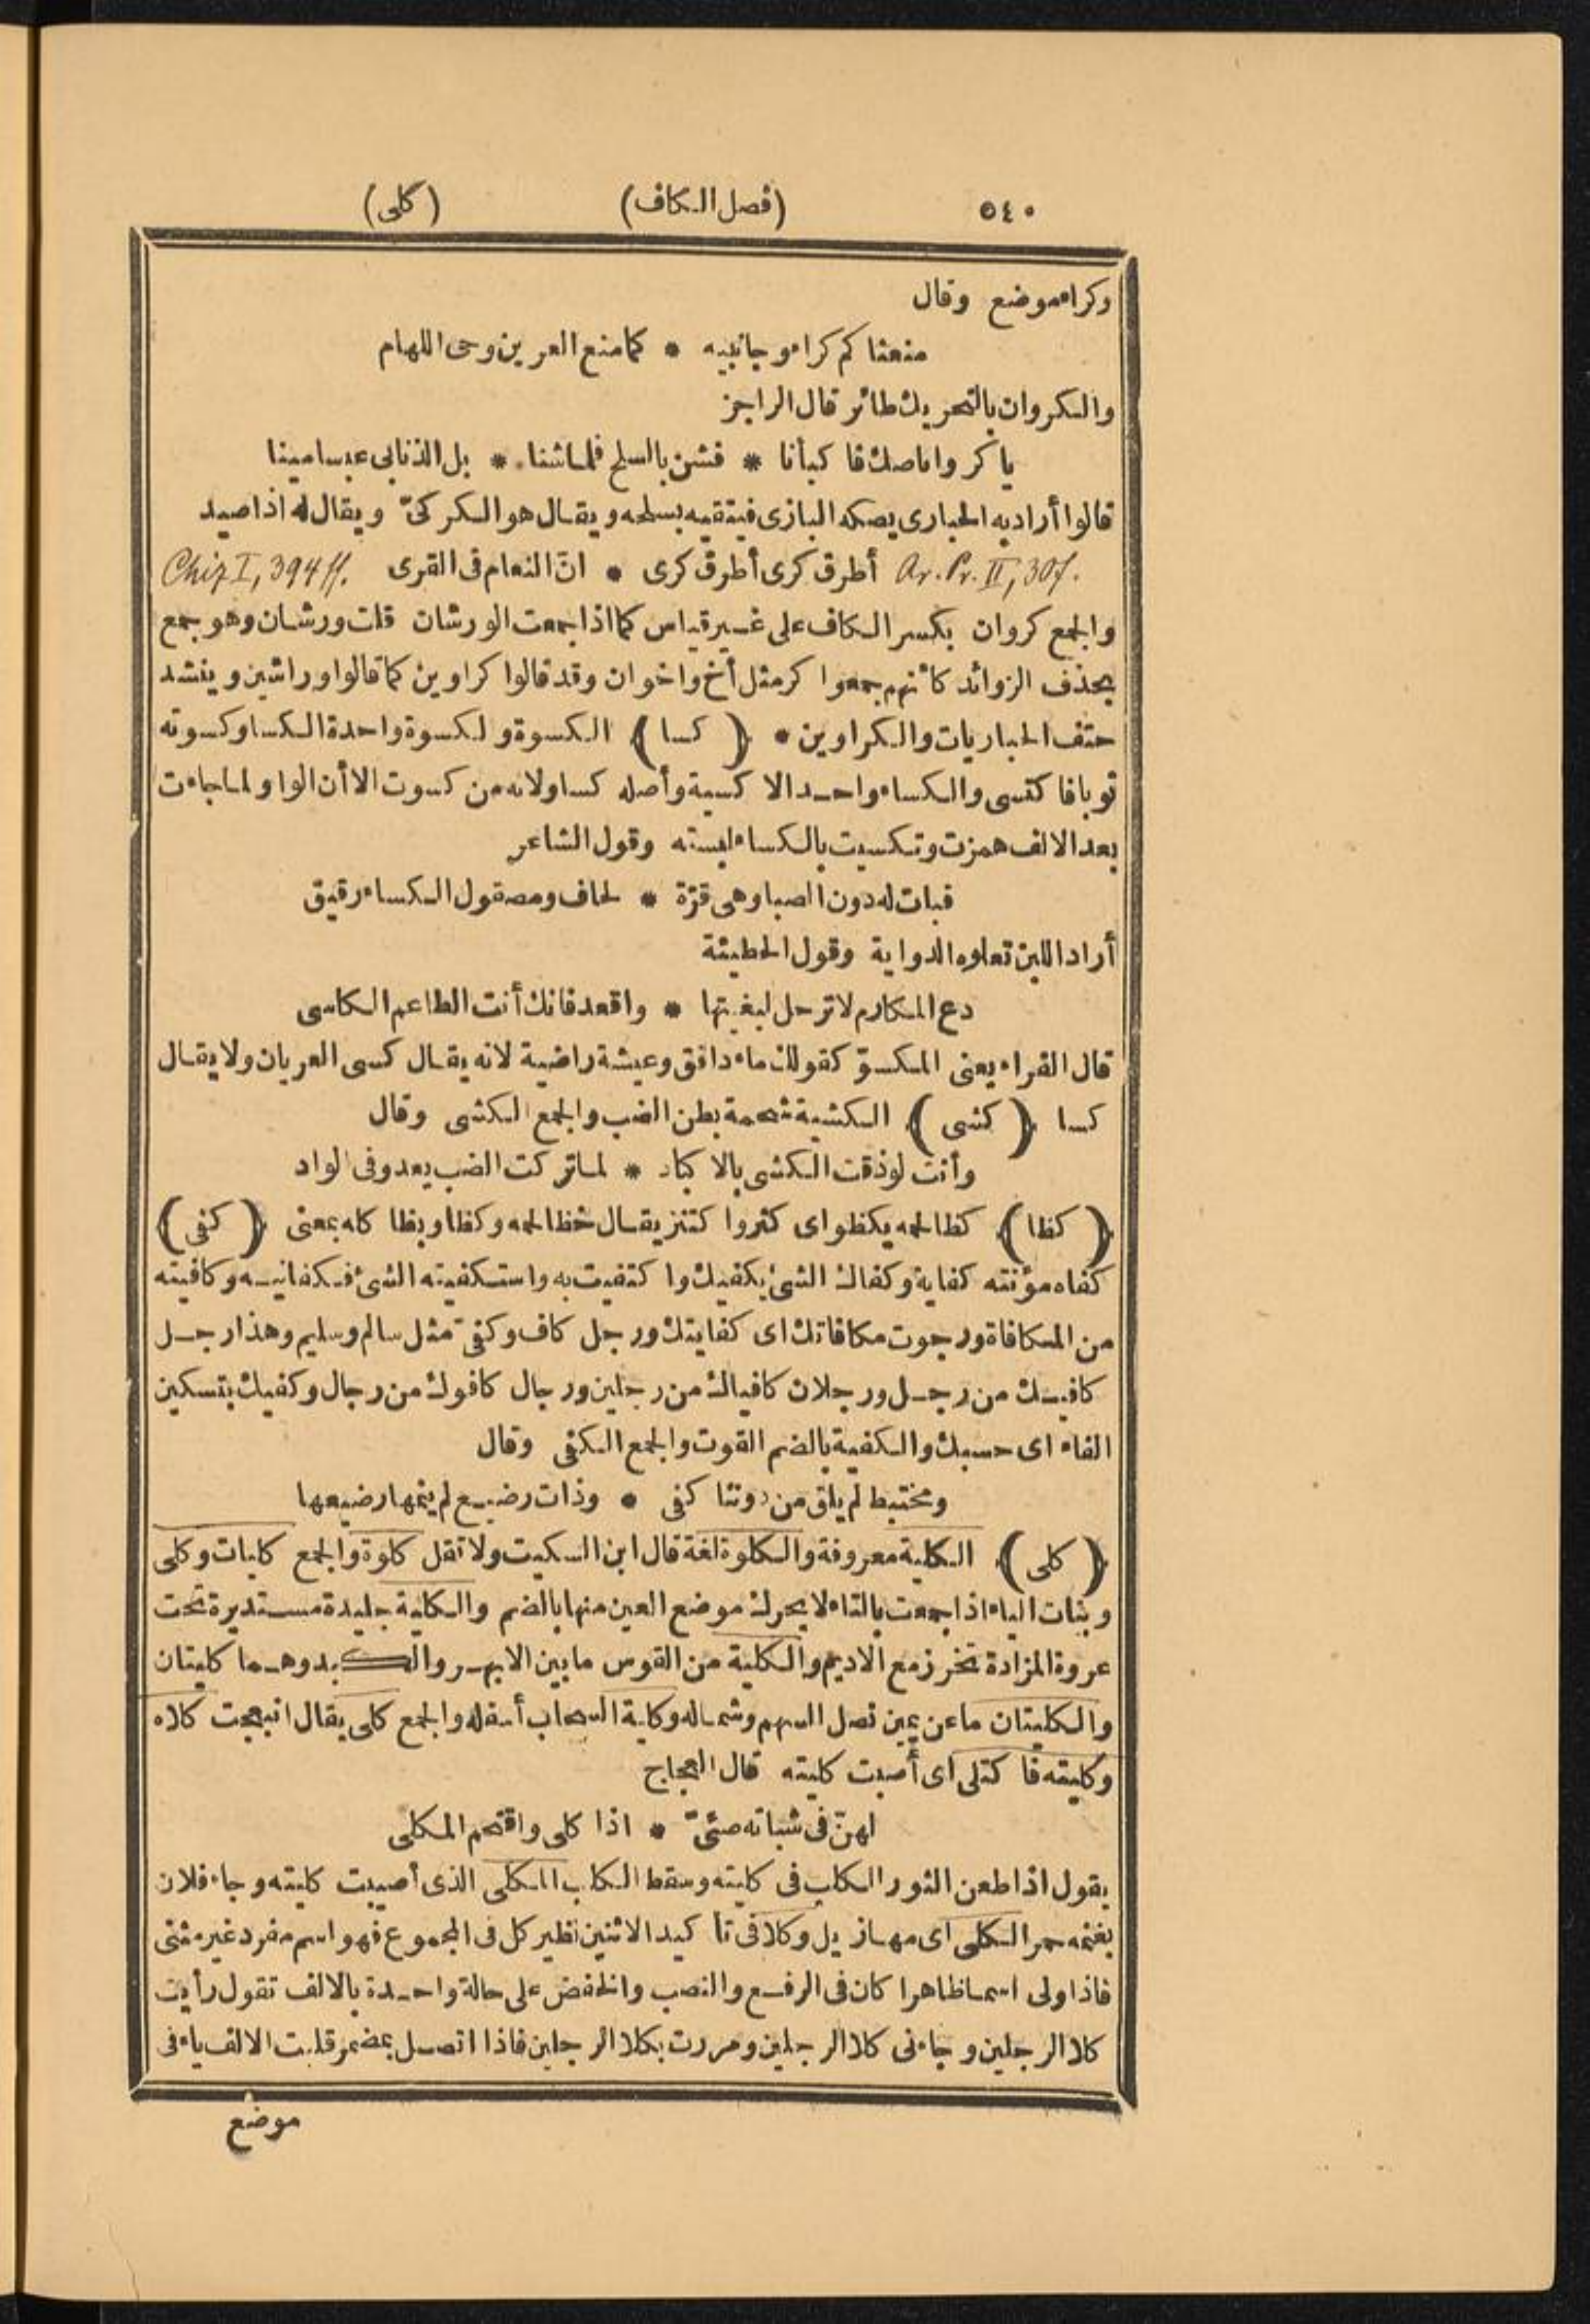 ٥٤٠ (فصل الكاف) (كلى)
وكراء موضع وقال
منعناكم كراء وجانبيه * كما منع العرين وحى اللهام
والكروان بالتحريك طائر قال الراجز
يا كروانا صك فاكبأنا * فشن بالسلح فلما شنا * بل الذنابى عبسا مبنا
قالوا أراد به الحبارى يصكه البازى فيتقيه بسلحه ويقال هو الكركىّ ويقال له اذا صيد
Ar. Pr. II, 307. أطرق كرى أطرق كرى * انّ النعام فى القرى Chiz I, 394 ff.
والجمع كروان بكسر الكاف على غير قياس كما اذا جمعت الورشان قلت ورشان وهو جمع
بحذف الزوائد كأنهم جمعوا كر مثل أخ واخوان وقد قالوا كراوين كما قالوا وراشين وينشد
حتف الحباريات والكراوين * (كسا) الكسوة والكسوة واحدة الكسا وكسوته
ثوبا فاكتسى والكساء واحد الاكسية وأصله كساو لانه من كسوت الا أن الواو لما جاءت
بعد الالف همزت وتكسيت بالكساء لبسته وقول الشاعر
فبات له دون الصبا وهى قرّة * لحاف ومصقول الكساء رقيق
أراد اللبن تعلوه الدواية وقول الحطيئة
دع المكارم لا ترحل لبغيتها * واقعد فانك أنت الطاعم الكاسى
قال الفراء يعنى المكسوّ كقولك ماء دافق وعيشة راضية لانه يقال كسى العريان ولا يقال
كسا (كشى) الكشية شحمة بطن الضب والجمع الكشى وقال
وأنت لو ذقت الكشى بالاكباد * لما تركت الضب يعدو فى الواد
(كظا) كظا لحمه يكظو اى كثر واكتنز يقال خظا لحمه وكظا وبظا كله بمعنى (كفى)
كفاه مؤنته كفاية وكفاك الشئ يكفيك واكتفيت به واستكفيته الشئ فكفانيه وكافيته
من المكافاة ورجوت مكافاتك اى كفايتك ورجل كاف وكفىّ مثل سالم وسليم وهذا رجل
كافيك من رجل ورجلان كافياك من رجلين ورجال كافوك من رجال وكفيك بتسكين
الفاء اى حسبك والكفية بالضم القوت والجمع الكفى وقال
ومختبط لم يلق من دوننا كفى * وذات رضيع لم ينمها رضيعها
(كلى) الكلية معروفة والكلوة لغة قال ابن السكيت ولا تقل كلوة والجمع كليات وكلى
وبنات الياء اذا جمعت بالتاء لا يحرك موضع العين منها بالضم والكلية جليدة مستديرة تحت
عروة المزادة تخرز مع الاديم والكلية من القوس ما بين الابهر والكبد وهما كليتان
والكليتان ما عن يمين نصل السهم وشماله وكلية السحاب أسفله والجمع كلى يقال انبعجت كلاه
وكليته فاكتلى اى أصبت كليته قال العجاج
لهنّ فى شباته صئىّ * اذا كلى واقتحم المكلى
يقول اذا طعن الثور الكلب فى كليته وسقط الكلب المكلى الذى أصيبت كليته وجاء فلان
بغنمه حمر الكلى اى مهازيل وكلا فى تأكيد الاثنين نظير كل فى المجموع فهو اسم مفرد غير مثنى
فاذا ولى اسما ظاهرا كان فى الرفع والنصب والخفض على حالة واحدة بالالف تقول رأيت
كلا الرجلين وجاءنى كلا الرجلين ومررت بكلا الرجلين فاذا اتصل بمضمر قلبت الالف ياء فى
موضع